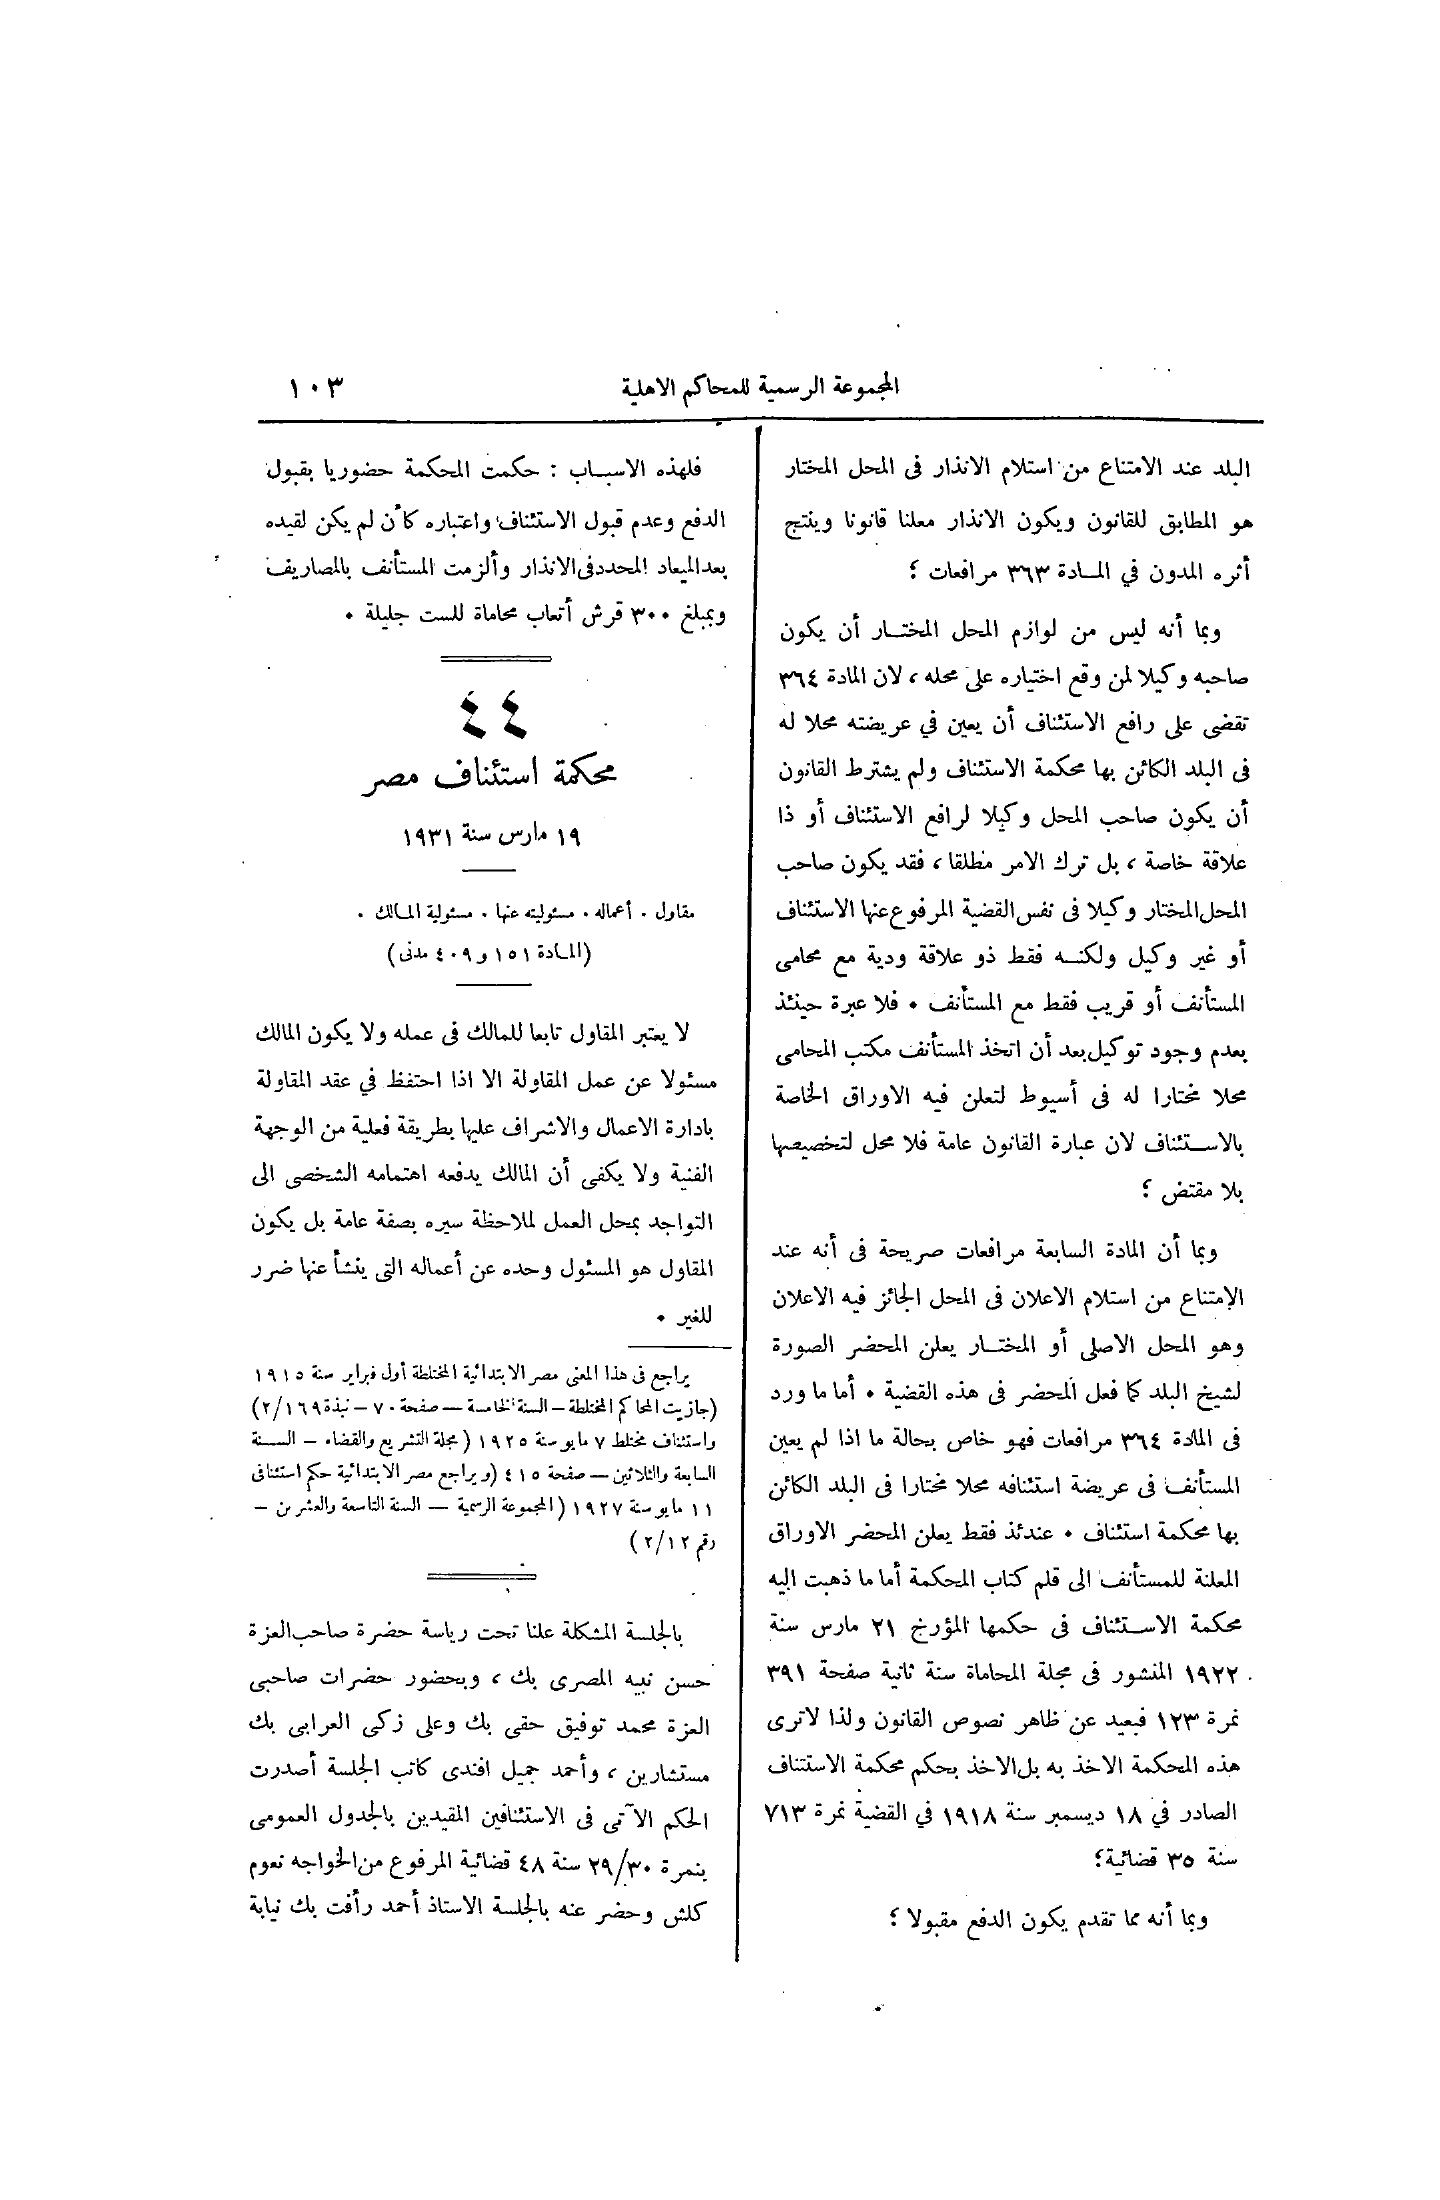 المجموعة الرسمية للمحاكم الاهلية
١٠٣
البلد عند الامتناع من استلام الانذار فى المحل المختار
هو المطابق للقانون ويكون الانذار معلنا قانونا وينتج
أثره المدون في المادة ٣٦٣ مرافعات ؛
وبما أنه ليس من لوازم المحل المختار أن يكون
صاحبه وكيلا لمن وقع اختياره على محله ، لان المادة ٣٦٤
تقضى على رافع الاستئناف أن يعين في عريضته محلا له
فى البلد الكائن بها محكمة الاستئناف ولم يشترط القانون
أن يكون صاحب المحل وكيلا لرافع الاستئناف أو ذا
علاقة خاصة ، بل ترك الامر مطلقا ، فقد يكون صاحب
المحل المختار وكيلا فى نفس القضية المرفوع عنها الاستئناف
أو غير وكيل ولكنه فقط ذو علاقة ودية مع محامى
المستأنف أو قريب فقط مع المستأنف . فلا عبرة حينئذ
بعدم وجود توكيل بعد أن اتخذ المستأنف مكتب المحامى
محلا مختارا له فى أسيوط لتعلن فيه الاوراق الخاصة
بالاستئناف لان عبارة القانون عامة فلا محل لتخصيصها
بلا مقتض ؛
وبما أن المادة السابعة مرافعات صريحة فى أنه عند
الامتناع من استلام الاعلان فى المحل الجائز فيه الاعلان
وهو المحل الاصلى أو المختار يعلن المحضر الصورة
لشيخ البلد كما فعل المحضر فى هذه القضية . أما ما ورد
فى المادة ٣٦٤ مرافعات فهو خاص بحالة ما اذا لم يعين
المستأنف فى عريضة استئنافه محلا مختارا فى البلد الكائن
بها محكمة استئناف . عندئذ فقط يعلن المحضر الاوراق
المعلنة للمستأنف الى قلم كتاب المحكمة أما ما ذهبت اليه
محكمة الاستئناف فى حكمها المؤرخ ٢١ مارس سنة
١٩٢٢ المنشور فى مجلة المحاماة سنة ثانية صفحة ٣٩١
نمرة ١٢٣ فبعيد عن ظاهر نصوص القانون ولذا لا ترى
هذه المحكمة الاخذ به بل الاخذ بحكم محكمة الاستئناف
الصادر في ١٨ ديسمبر سنة ١٩١٨ في القضية نمرة ٧١٣
سنة ٣٥ قضائية؛
وبما أنه مما تقدم يكون الدفع مقبولا ؛
فلهذه الاسباب : حكمت المحكمة حضوريا بقبول
الدفع وعدم قبول الاستئناف واعتباره كأن لم يكن لقيده
بعد الميعاد المحدد فى الانذار وألزمت المستأنف بالمصاريف
وبمبلغ ٣٠٠ قرش أتعاب محاماة للست جليلة .
٤٤
محكمة استئناف مصر
١٩ مارس سنة ١٩٣١
مقاول . أعماله . مسئوليته عنها . مسئولية المالك .
(المادة ١٥١ و ٤٠٩ مدنى)
لا يعتبر المقاول تابعا للمالك فى عمله ولا يكون المالك
مسئولا عن عمل المقاولة الا اذا احتفظ في عقد المقاولة
بادارة الاعمال والاشراف عليها بطريقة فعلية من الوجهة
الفنية ولا يكفى أن المالك يدفعه اهتمامه الشخصى الى
التواجد بمحل العمل لملاحظة سيره بصفة عامة بل يكون
المقاول هو المسئول وحده عن أعماله التى ينشأ عنها ضرر
للغير .
يراجع فى هذا المعنى مصر الابتدائية المختلطة أول فبراير سنة ١٩١٥
(جازيت المحاكم المختلطة – السنة الخامسة – صفحة ٧٠ – نبذة ٢/١٦٩)
واستئناف مختلط ٧ مايو سنة ١٩٢٥ (مجلة التشريع والقضاء – السنة
السابعة والثلاثين – صفحة ٤١٥ (ويراجع مصر الابتدائية حكم استئنافى
١١ مايو سنة ١٩٢٧ (المجموعة الرسمية – السنة التاسعة والعشرين –
رقم ٢/١٢)
بالجلسة المشكلة علنا تحت رياسة حضرة صاحب العزة
حسن نبيه المصرى بك ، وبحضور حضرات صاحبى
العزة محمد توفيق حقى بك وعلى زكى العرابى بك
مستشارين ، وأحمد جميل افندى كاتب الجلسة أصدرت
الحكم الآتى فى الاستئنافين المقيدين بالجدول العمومى
بنمرة ٢٩/٣٠ سنة ٤٨ قضائية المرفوع من الخواجه نعوم
كلش وحضر عنه بالجلسة الاستاذ أحمد رأفت بك نيابة